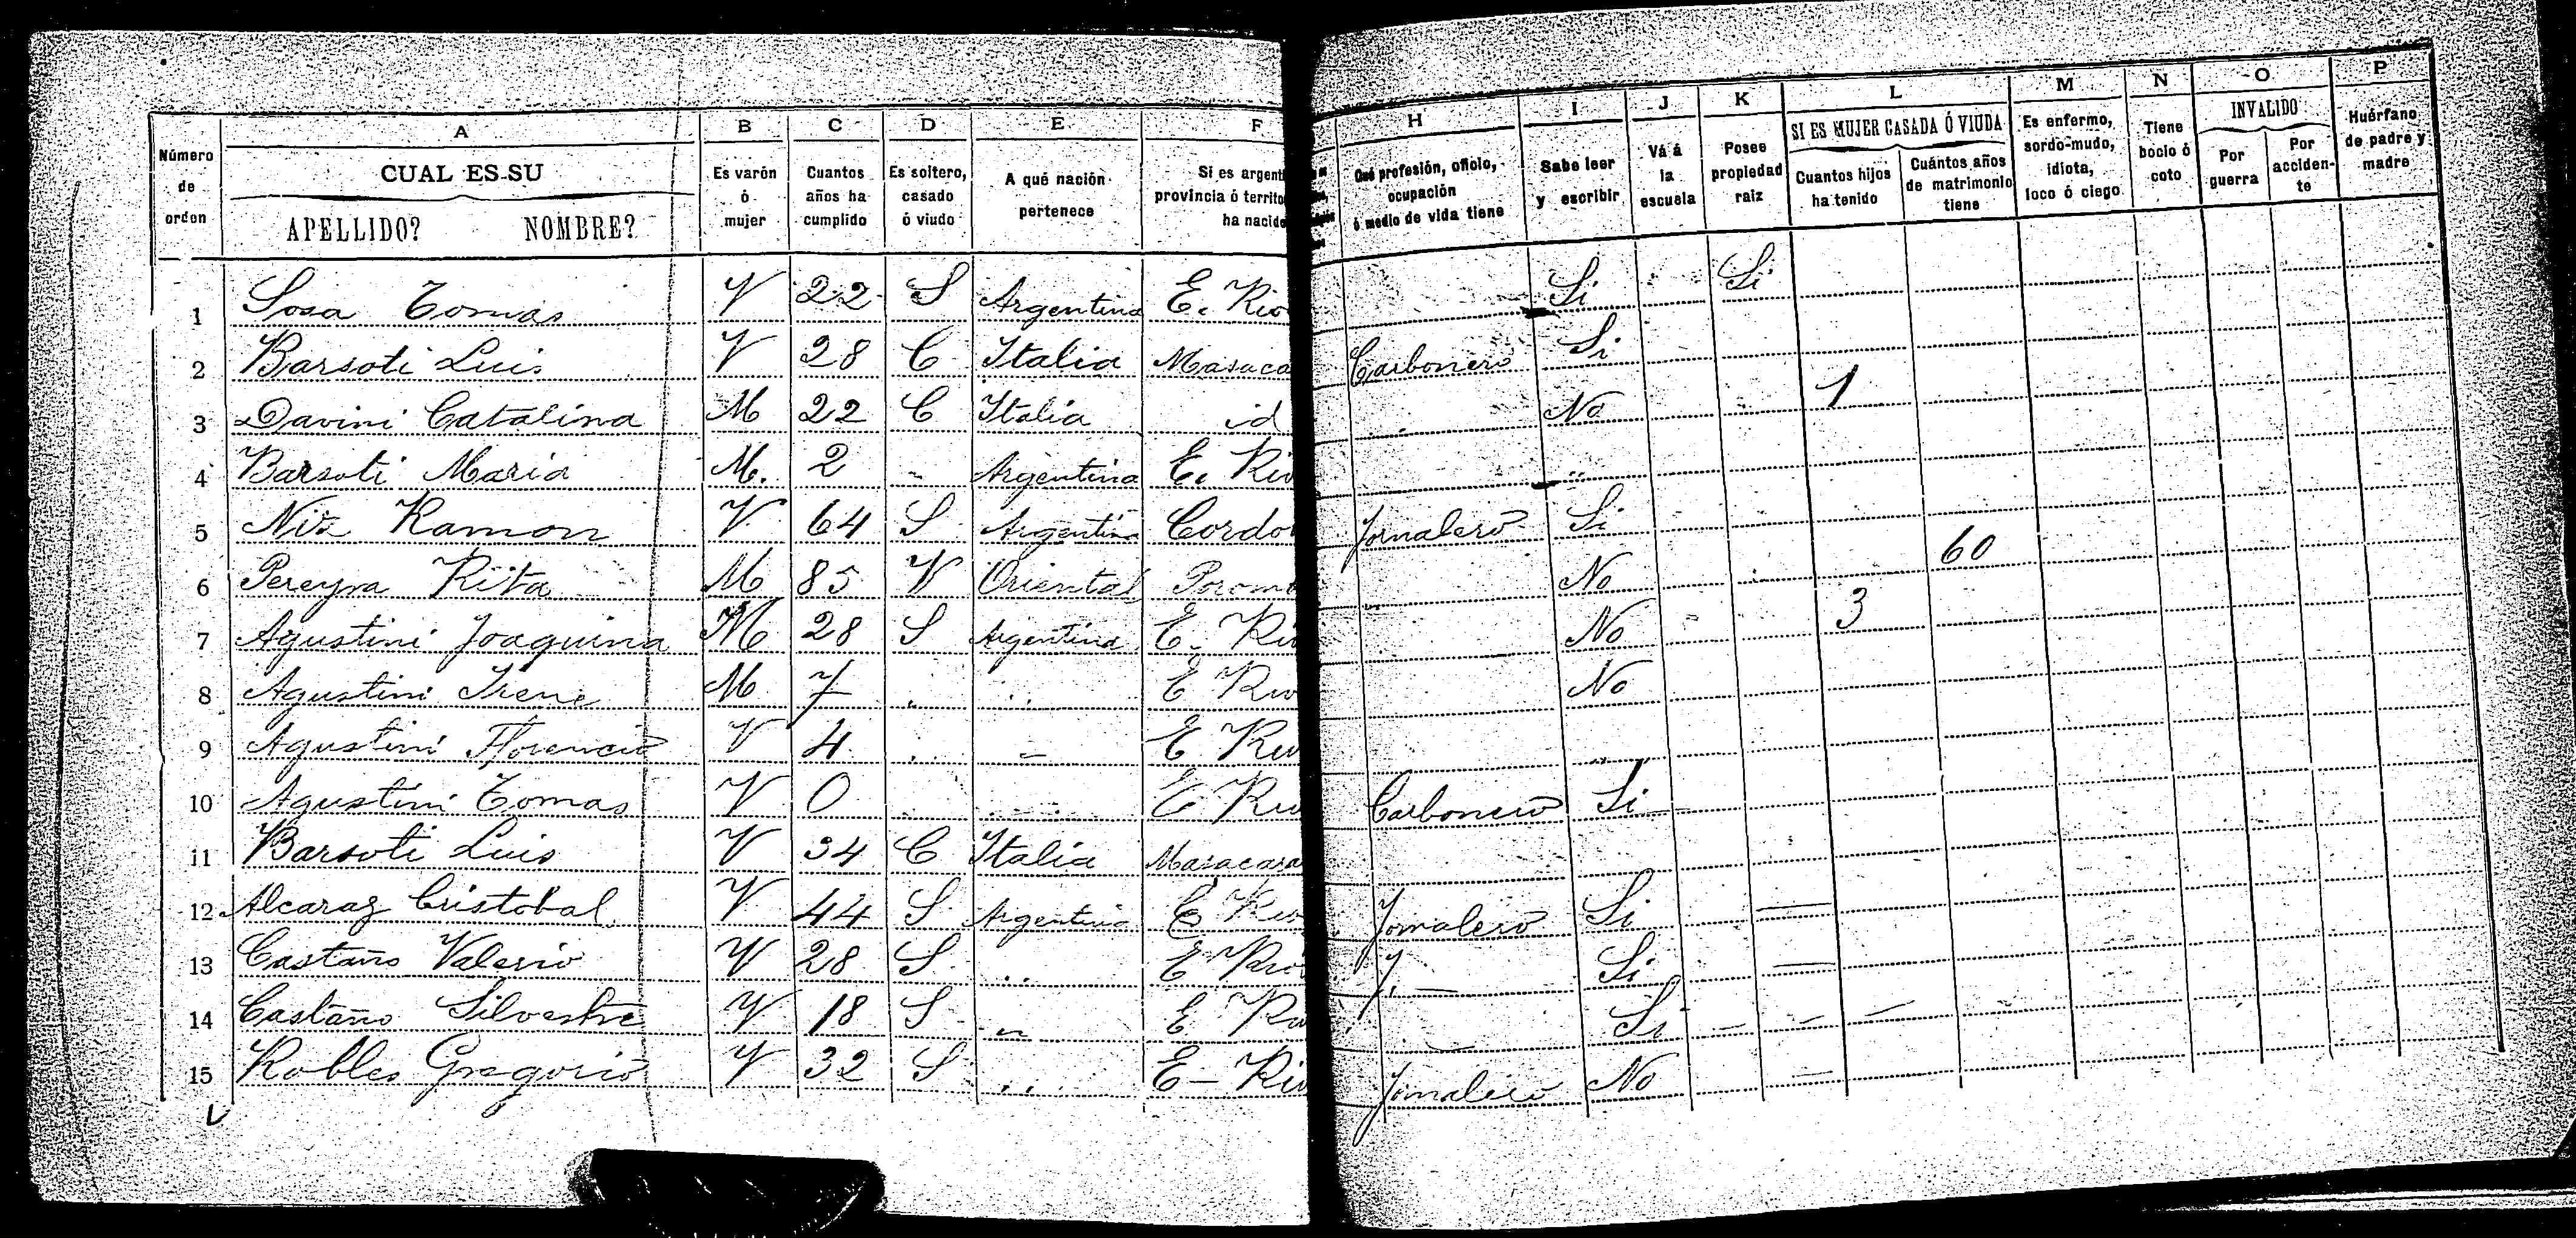 A B C D E F H I J K L M N O P
Número de orden
CUAL ES SU
APELLIDO? NOMBRE?
Es varón ó mujer
Cuantos años ha cumplido
Es soltero, casado ó viudo
A qué nación pertenece
Si es argenti
provincia ó territo
ha nacido
Qué profesión, oficio, ocupación ó medio de vida tiene
Sabe leer y escribir
Vá á la escuela
Posee propiedad raiz
SI ES MUJER CASADA Ó VIUDA
Cuantos hijos ha tenido
Cuántos años de matrimonio tiene
Es enfermo, sordo-mudo, idiota, loco ó ciego
Tiene bocio ó coto
INVALIDO
Por guerra
Por acciden-te
Huérfano de padre y madre
1 Sosa Tomas V 22 S Argentina E. Rio Si Si
2 Barsoti Luis V 28 C Italia Masaca Carbonero Si
3 Davini Catalina M 22 C Italia id No 1
4 Barsoti Maria M. 2 - Argentina E. Rio "
5 Niz Ramon V 64 S Argentina Cordo Jornalero Si
6 Pereyra Rita M 85 V Oriental No 60
7 Agustini Joaquina M 28 S Argentina E. Rio No 3
8 Agustini Irene M 7 E Rio No
9 Agustini Florencio V 4 E Rio
10 Agustini Tomas V 0 E Rio Carbonero Si
11 Barsoti Luis V 34 C Italia Masacara
12 Alcaraz Cristobal V 44 S Argentina E Rio Jornalero Si
13 Castaño Valerio V 28 S " E Rio J. Si
14 Castaño Silvestre V 18 S " E Rio Si
15 Robles Gregorio V 32 S " E - Rio Jornalero No